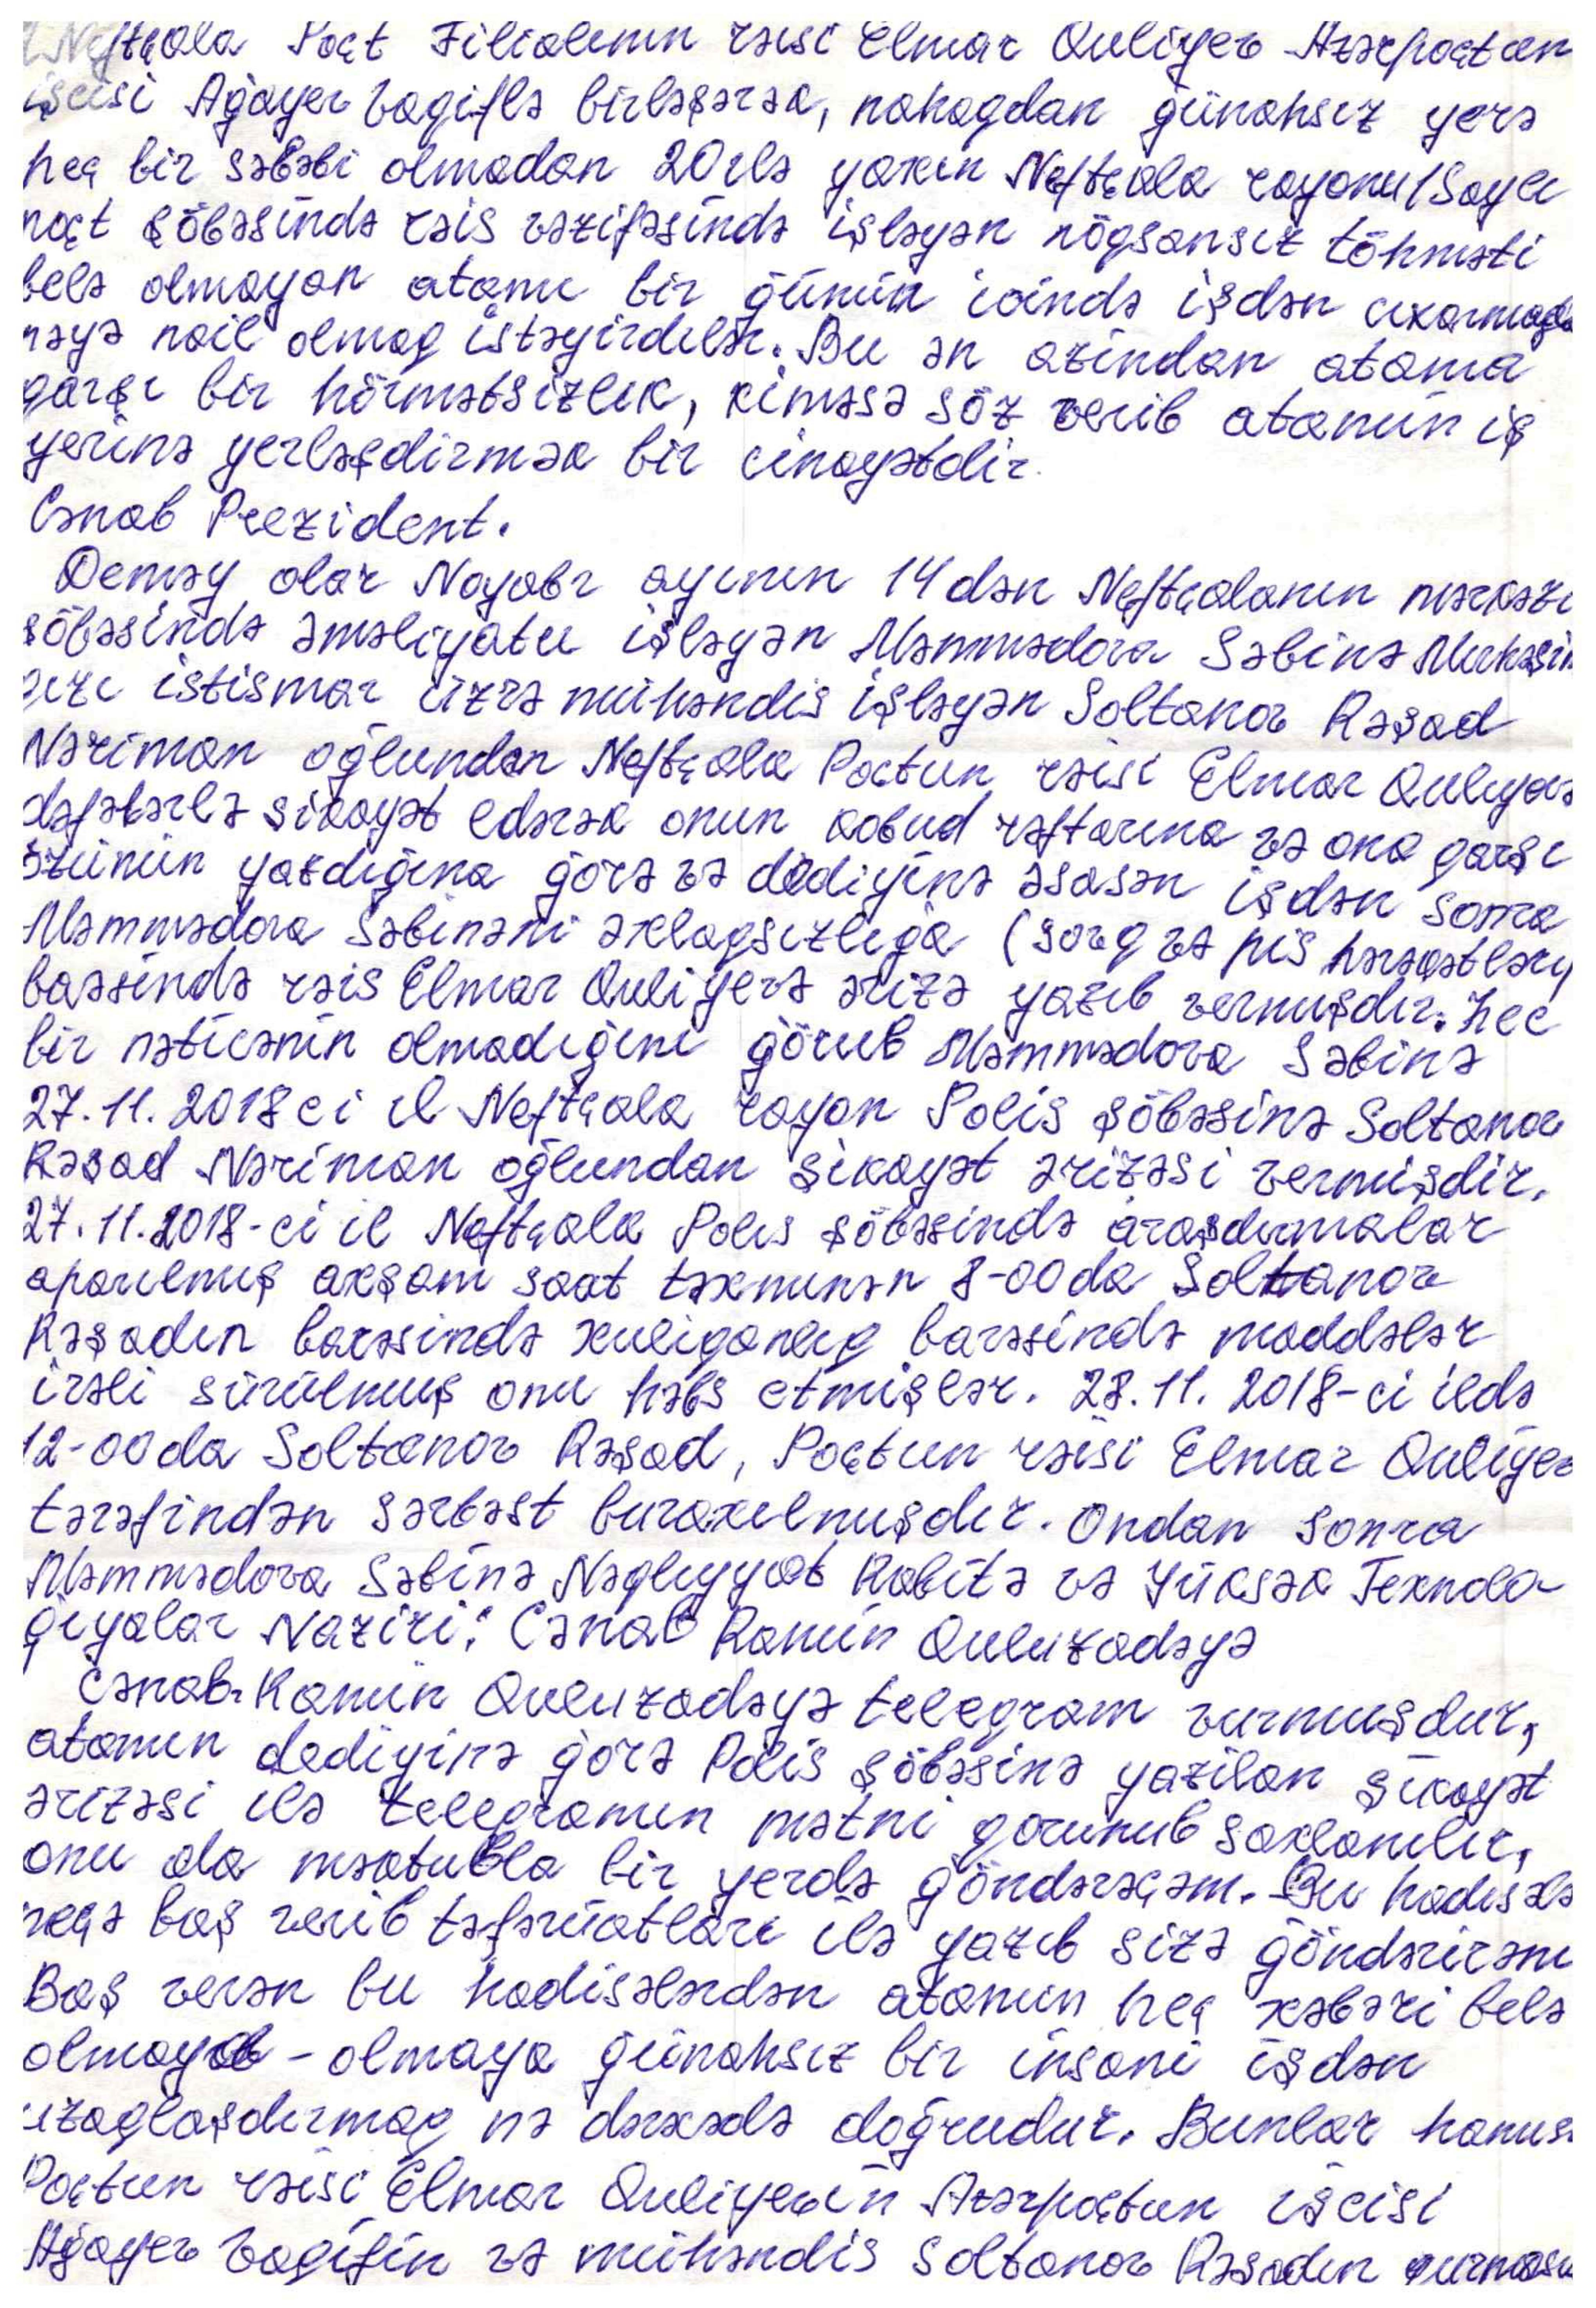 Neftçala Poçt Filialının rəisi Elmar Quliyev Azərpoçtun
işcisi Ağayev Vaqiflə birləşərək, nahaqdan günahsız yerə
heç bir səbəbi olmadan 20 ilə yaxın Neftçala rayonu
poçt şöbəsində rəis vəzifəsində işləyən nöqsansız töhməti
belə olmayan atamı bir günün icində işdən cıxarmaqla
nəyə nail olmaq istəyirdilər. Bu ən azından atama
qarşı bir hörmətsizlik, kiməsə söz verib atamın iş
yerinə yerləşdirmək bir cinayətdir.
Cənab Prezident.
Deməy olar Noyabr ayının 14 dən Neftçalanın mərkəzi
şöbəsində əməliyatcı işləyən Məmmədova Səbinə
qızı istismar üzrə mühəndis işləyən Soltanov Rəşad
Nəriman oğlundan Neftçala Poçtun rəisi Elmar Quliyevə
dəfələrlə şikayət edərək onun kobud rəftarına və ona qarşı
özünün yazdığına görə və dediyinə əsasən işdən sonra
Məmmədova Səbinəni əxlaqsızlığa (sövq və pis hərəkətləri)
barəsində rəis Elmar Quliyevə ərizə yazıb vermişdir. Hec
bir nəticənin olmadığını görüb Məmmədova Səbinə
27.11.2018 ci il Neftçala rayon Polis şöbəsinə Soltanov
Rəşad Nəriman oğlundan şikayət ərizəsi vermişdir.
27.11.2018-ci il Neftçala Polis şöbəsində araşdırmalar
aparılmış axşam saat təxminən 8-00 da Soltanov
Rəşadın barəsində xuliqanlıq barəsində maddələr
irəli sürülmuş onu həbs etmişlər. 28.11.2018-ci ildə
12-00 da Soltanov Rəşad, Poçtun rəisi Elmar Quliyev
tərəfindən sərbəst buraxılmışdır. Ondan sonra
Məmmədova Səbinə Nəqliyyat Rabitə və Yüksək Texnola
giyalar Naziri: Cənab Ramin Quluzadəyə
Cənab Ramin Quluzadəyə telegram vurmuşdur,
atamın dediyinə görə Polis şöbəsinə yazılan şikayət
ərizəsi ilə telegramın mətni qorunub saxlanılır,
onu da məktubla bir yerdə göndərəcəm. Bu hadisələr
neçə baş verib təfərüatları ilə yazıb sizə göndərirəm
Baş verən bu hadisələrdən atamın heç xəbəri belə
olmayıb - olmaya günahsız bir insanı işdən
uzaqlaşdırmaq nə dərəcədə doğrudur. Bunlar hamısı
Poçtun rəisi Elmar Quliyevin Azərpoçtun işcisi
Ağayev Vaqifin və mühəndis Soltanov Rəşadın qurması